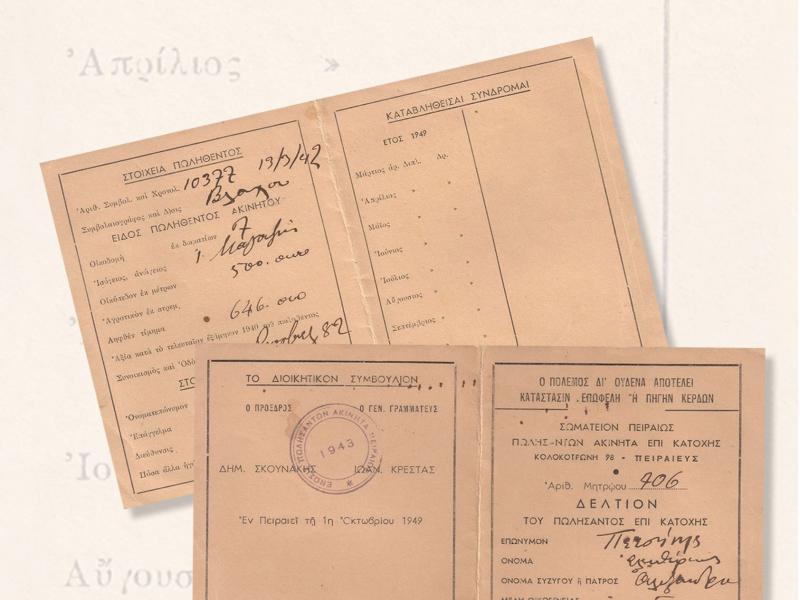 Ἀπρίλιος »
ΣΤΟΙΧΕΙΑ ΠΩΛΗΘΕΝΤΟΣ
Ἀριθ. Συμβολ. καὶ Χρονολ. 10377 13/3/42
Συμβολαιογράφος καὶ Δ)σις
ΕΙΔΟΣ ΠΩΛΗΘΕΝΤΟΣ ΑΚΙΝΗΤΟΥ
Οἰκοδομὴ ἐκ δωματίων 7
Ἰσόγειος, ἀνώγειος
Οἰκόπεδον ἐκ μέτρων 500
Ἀγροτικὸν ἐκ στρεμ.
Ληφθὲν τίμημα 646
Ἀξία κατὰ τὸ τελευταῖον ἑξάμηνον 1940 τοῦ πωληθέντος
Συνοικισμὸς καὶ Ὁδὸς 82
ΣΤΟ
Ὀνοματεπώνυμον
Ἐπάγγελμα
Διεύθυνσις
Πόσα ἄλλα
ΚΑΤΑΒΛΗΘΕΙΣΑΙ ΣΥΝΔΡΟΜΑΙ
ΕΤΟΣ 1949
Μάρτιος ἀρ. Διπλ. Δρ.
Ἀπρίλιος " "
Μάϊος " "
Ἰούνιος " "
Ἰούλιος " "
Αὔγουστος " "
Σεπτέμβριος " "
ΤΟ ΔΙΟΙΚΗΤΙΚΟΝ ΣΥΜΒΟΥΛΙΟΝ
Ο ΠΡΟΕΔΡΟΣ Ο ΓΕΝ. ΓΡΑΜΜΑΤΕΥΣ
ΕΝΩΣΙΣ ΠΩΛΗΣΑΝΤΩΝ ΑΚΙΝΗΤΑ ΠΕΙΡΑΙΩΣ
1943
ΔΗΜ. ΣΚΟΥΝΑΚΗΣ ΙΩΑΝ. ΚΡΕΣΤΑΣ
Ἐν Πειραιεῖ τῇ 1ῃ Ὀκτωβρίου 1949
Ο ΠΟΛΕΜΟΣ ΔΙ' ΟΥΔΕΝΑ ΑΠΟΤΕΛΕΙ
ΚΑΤΑΣΤΑΣΙΝ ΕΠΩΦΕΛΗ Ἢ ΠΗΓΗΝ ΚΕΡΔΩΝ
ΣΩΜΑΤΕΙΟΝ ΠΕΙΡΑΙΩΣ
ΠΩΛΗΣ-ΝΤΩΝ ΑΚΙΝΗΤΑ ΕΠΙ ΚΑΤΟΧΗΣ
ΚΟΛΟΚΟΤΡΩΝΗ 98 - ΠΕΙΡΑΙΕΥΣ
Ἀριθ. Μητρώου 406
ΔΕΛΤΙΟΝ
ΤΟΥ ΠΩΛΗΣΑΝΤΟΣ ΕΠΙ ΚΑΤΟΧΗΣ
ΕΠΩΝΥΜΟΝ
ΟΝΟΜΑ
ΟΝΟΜΑ ΣΥΖΥΓΟΥ ἢ ΠΑΤΡΟΣ
Ἰο
Αὔγουσ